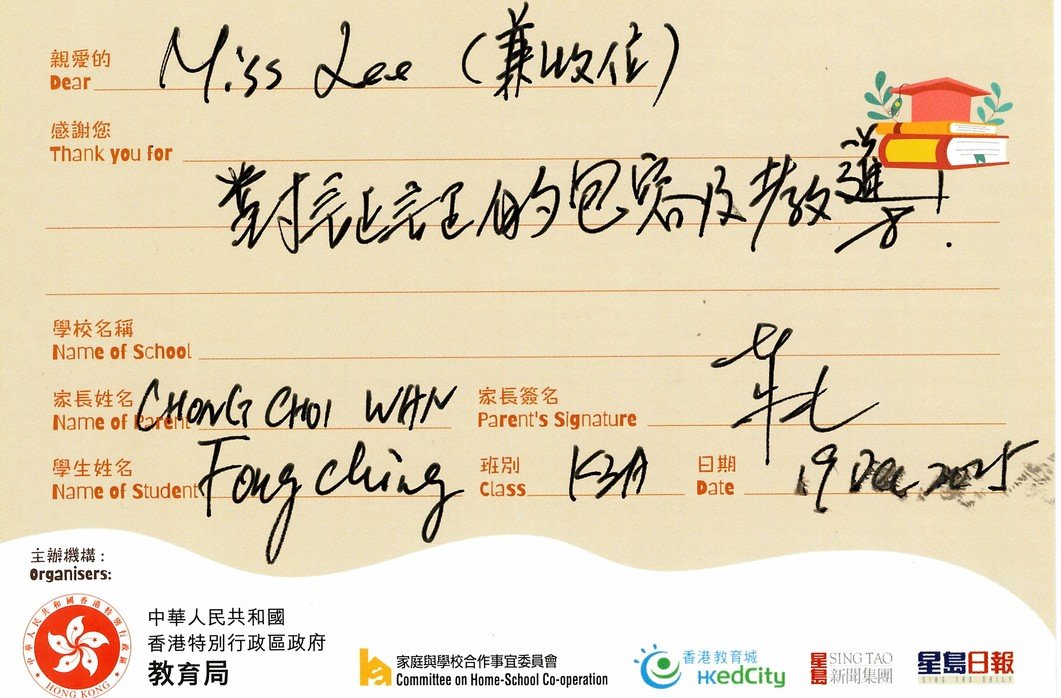 親愛的
Dear Miss Lee (兼收位)
感謝您
Thank you for
對 的包容及教導!
學校名稱
Name of School
家長姓名 家長簽名
Name of Parent CHONG CHOI WAN Parent's Signature
學生姓名 班別 日期
Name of Student Fong Ching Class K3A Date 19 Dec 2025
主辦機構:
Organisers:
中華人民共和國
香港特別行政區政府
教育局
中華人民共和國香港特別行政區
HONG KONG
家庭與學校合作事宜委員會
Committee on Home-School Co-operation
香港教育城
HKedCity
星島 SING TAO
新聞集團
星島日報
SING TAO DAILY